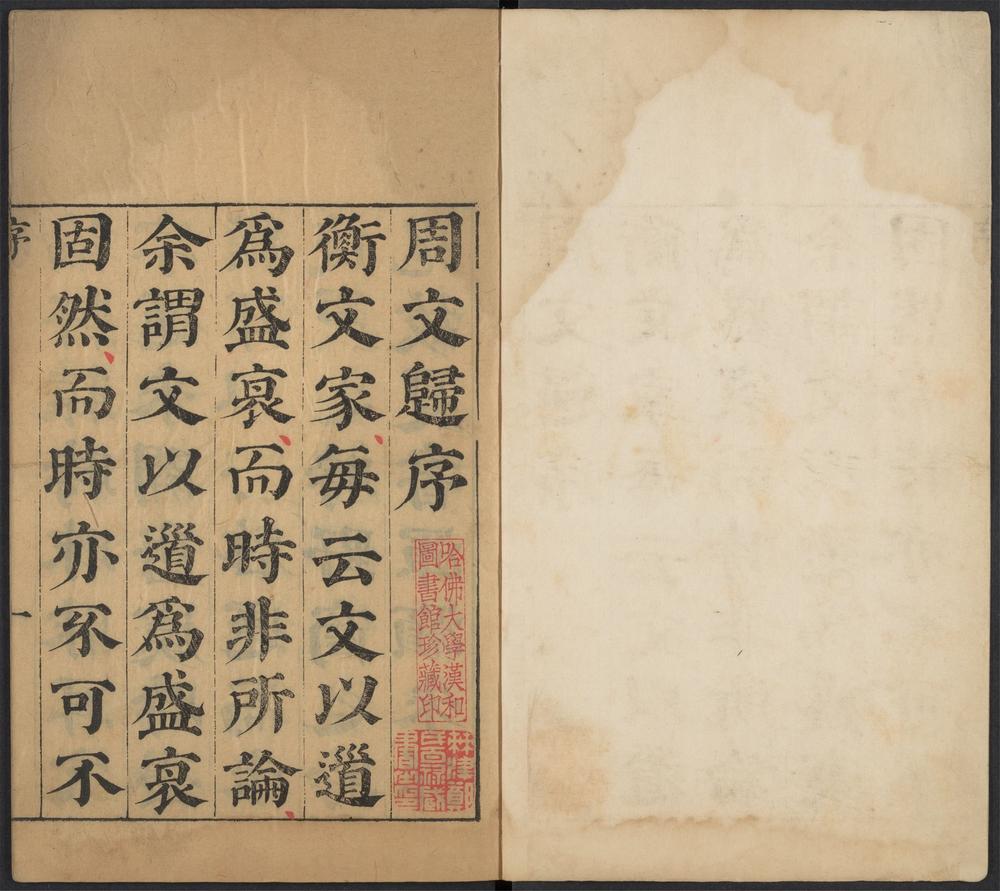 周文歸序
衡文家每云文以道
爲盛衰而時非所論
余謂文以道爲盛衰
固然而時亦不可不
序
一
哈佛大學漢和
圖書館珍藏印